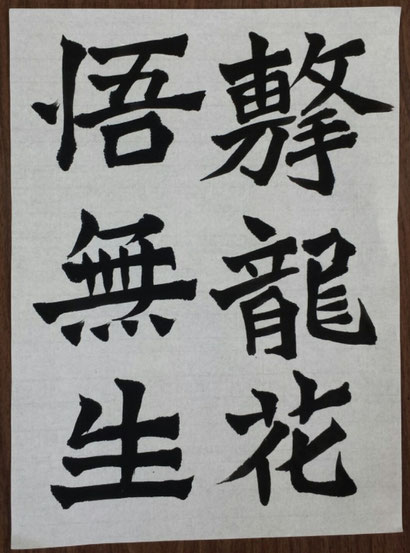 擊龍花
悟無生